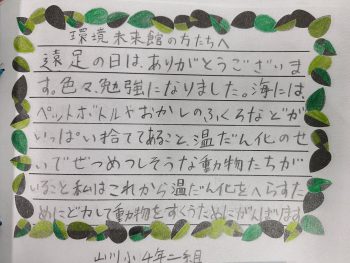 環境未来館の方たちへ
遠足の日は、ありがとうございま
す。色々、勉強になりました。海には、
ペットボトルやおかしのふくろなどが
いっぱい捨ててあること、温だん化のせ
いでぜつめつしそうな動物たちが
いること私はこれから温だん化をへらすた
めにどカして動物をすくうためにがんばります
山川小4年二組